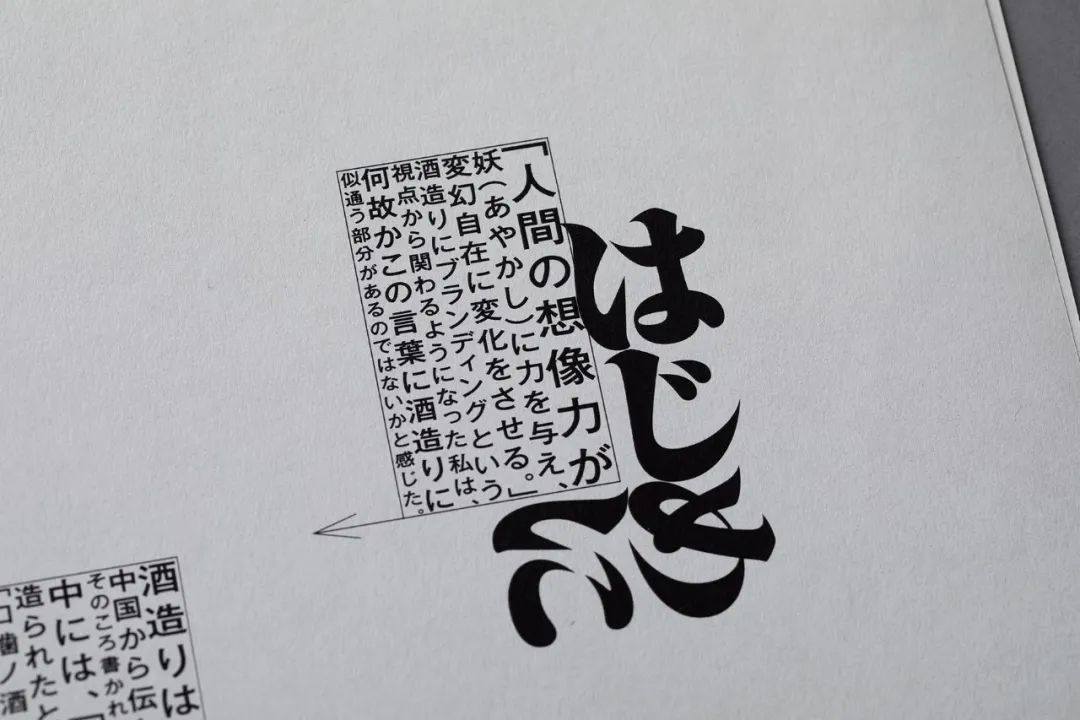 はじめに
「人間の想像力が、
妖(あやかし)に力を与え、
変幻自在に変化をさせる。」
酒造りにブランディングという
視点から関わるようになった私は、
何故かこの言葉に酒造りに
似通う部分があるのではないかと感じた。
酒造りは
中国から伝
そのころ書かれ
中には、「
造られたと
「口噛ノ酒